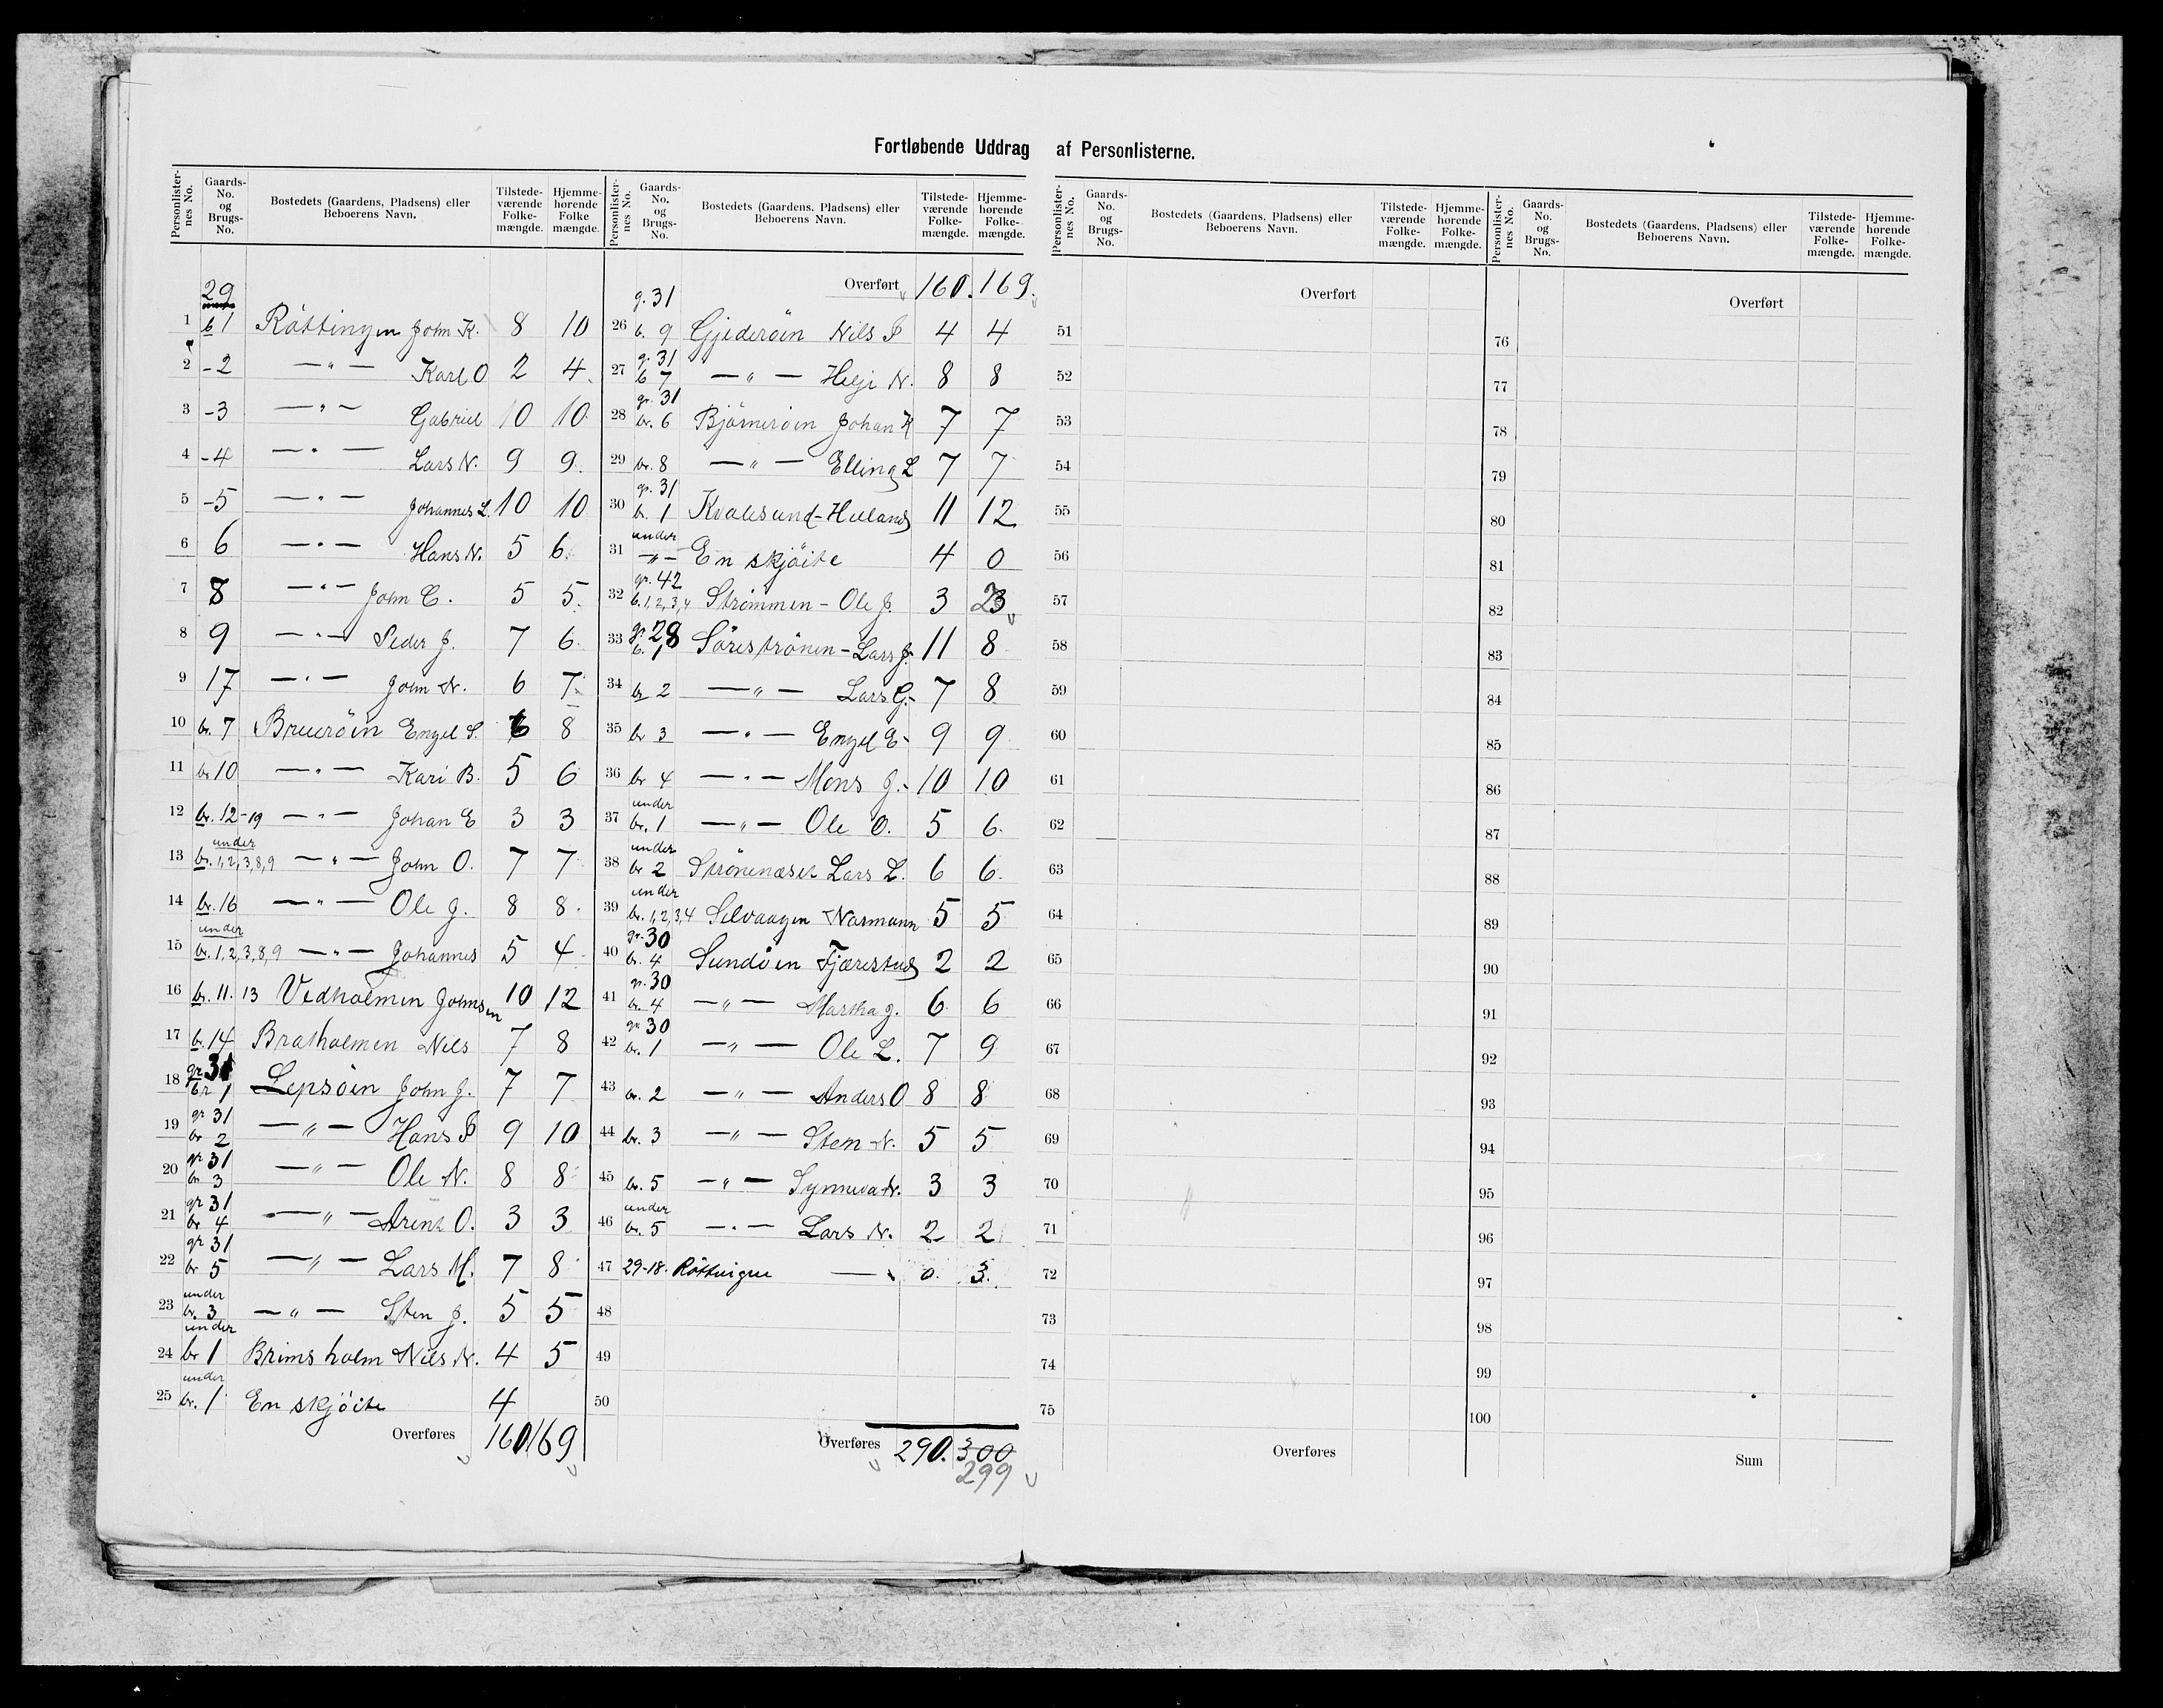 Fortløbende Uddrag af Personlisterne.
Personlister- nes No. Gaards- No. og Brugs- No. Bostedets (Gaardens, Pladsens) eller Beboerens Navn. Tilstede- værende Folke- mængde. Hjemme- hørende Folke mængde.
29
1 b 1 Röttingen John K. 8 10
2 -2 —"— Karl O 2 4
3 -3 —"— Gabriel 10 10
4 -4 —"— Lars N. 9 9
5 -5 —"— Johannes L. 10 10
6 6 —"— Hans N. 5 6
7 8 —"— John C. 5 5
8 9 —"— Peder J. 7 6
9 17 —"— John N. 6 7
10 br. 7 Bruerøin Engel S. 6 8
11 br 10 —"— Kari B. 5 6
12 br. 12-19 —"— Johan E 3 3
13 under br. 1,2,3,8,9 —"— John O. 7 7
14 br. 16 —"— Ole J. 8 8
15 under br. 1,2,3,8,9 —"— Johannes 5 4
16 br. 11. 13 Vedholmen Johnsen 10 12
17 b. 14 Bratholmen Nils 7 8
18 gr 31 br 1 Lepsöin John J. 7 7
19 gr 31 br 2 —"— Hans P 9 10
20 gr 31 br 3 —"— Ole N. 8 8
21 gr 31 br 4 —"— Arent O. 3 3
22 gr 31 br 5 —"— Lars M. 7 8
23 under br. 3 —"— Sten J. 5 5
24 under br 1 Brimsholm Nils N. 4 5
25 under br. 1 En skjöite 4
Overføres 160 169
Personlister- nes No. Gaards- No. og Brugs- No. Bostedets (Gaardens, Pladsens) eller Beboerens Navn. Tilstede- værende Folke- mængde. Hjemme- hørende Folke- mængde.
Overført 160. 169.
26 g. 31 b. 9 Gjederöin Nils P 4 4
27 g. 31 b 7 —"— Helje N. 8 8
28 gr. 31 br. 6 Björneröin Johan K 7 7
29 br. 8 —"— Elling L 7 7
30 gr. 31 br. 1 Kvalesund-Helland 11 12
31 under —"— En skjöite 4 0
32 gr. 42 b. 1,2,3,4 Strömmen - Ole J. 3 23
33 gr. 28 b. 1 Söreströnen - Lars J. 11 8
34 br 2 —"— Lars G. 7 8
35 br 3 —"— Engel E 9 9
36 br 4 —"— Mons J. 10 10
37 under br. 1 —"— Ole O. 5 6
38 under br 2 Strönenæset Lars L. 6 6
39 under br. 1,2,3,4 Selvaagen Normann 5 5
40 gr. 30 br. 4 Sundöen Fjærestad 2 2
41 gr. 30 br. 4 —"— Martha J. 6 6
42 gr 30 br. 1 —"— Ole L. 7 9
43 br. 2 —"— Anders O 8 8
44 br. 3 —"— Sten N. 5 5
45 br. 5 —"— Synneva N. 3 3
46 under br. 5 —"— Lars N. 2 2
47 29-18. Röttingen — 0. 3.
48
49
50
Overføres 290. 300
299
Personlister- nes No. Gaards- No. og Brugs- No. Bostedets (Gaardens, Pladsens) eller Beboerens Navn. Tilstede- værende Folke- mængde. Hjemme- hørende Folke- mængde.
Overført
51
52
53
54
55
56
57
58
59
60
61
62
63
64
65
66
67
68
69
70
71
72
73
74
75
Overføres
Personlister- nes No. Gaards- No. og Brugs- No. Bostedets (Gaardens, Pladsens) eller Beboerens Navn. Tilstede- værende Folke- mængde. Hjemme- hørende Folke- mængde.
Overført
76
77
78
79
80
81
82
83
84
85
86
87
88
89
90
91
92
93
94
95
96
97
98
99
100
Sum